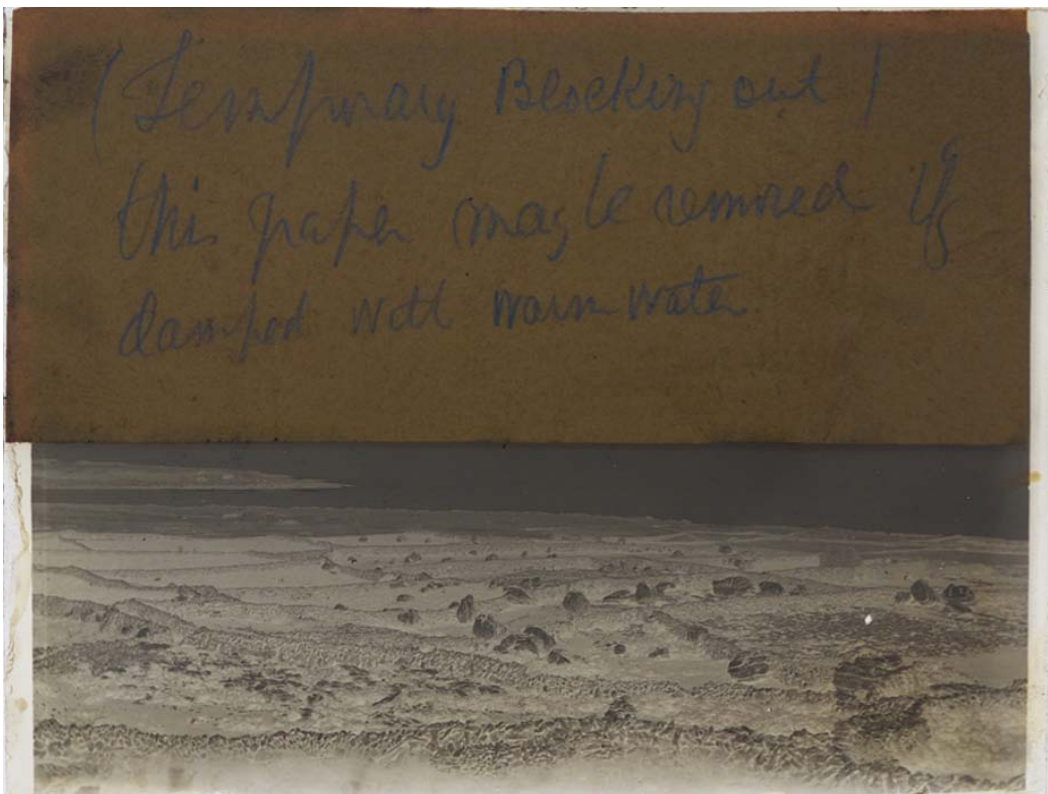 (Temporary Blocking out)
this paper may be removed if
damped with warm water